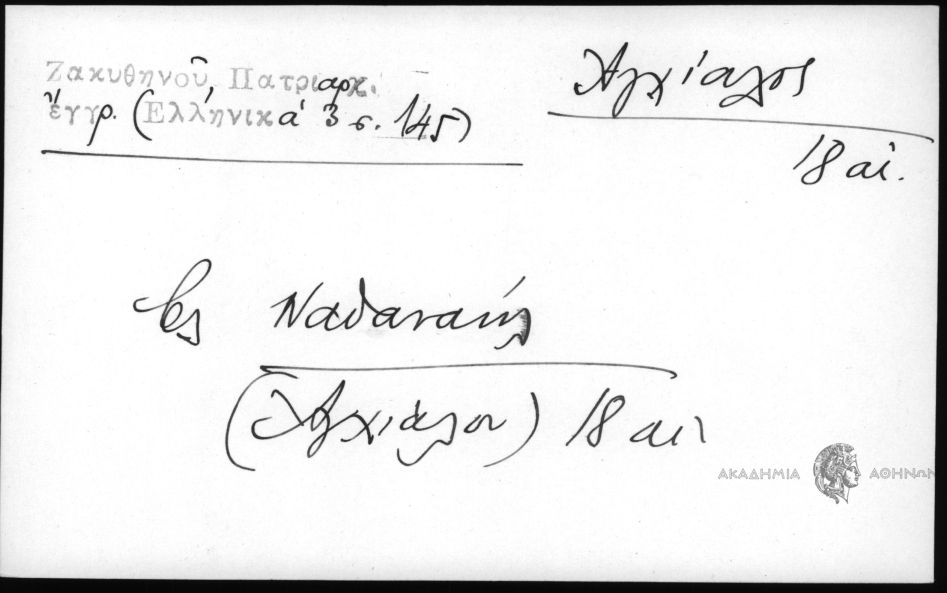 Ζακυθηνοῦ, Πατριαρχ.
ἔγγρ. (Ἑλληνικά 3 σ. 145)
Ἀγχίαλος
18 αἰ.
Ναθαναήλ
(Ἀγχιάλου) 18 αι
ΑΚΑΔΗΜΙΑ ΑΘΗΝΩΝ